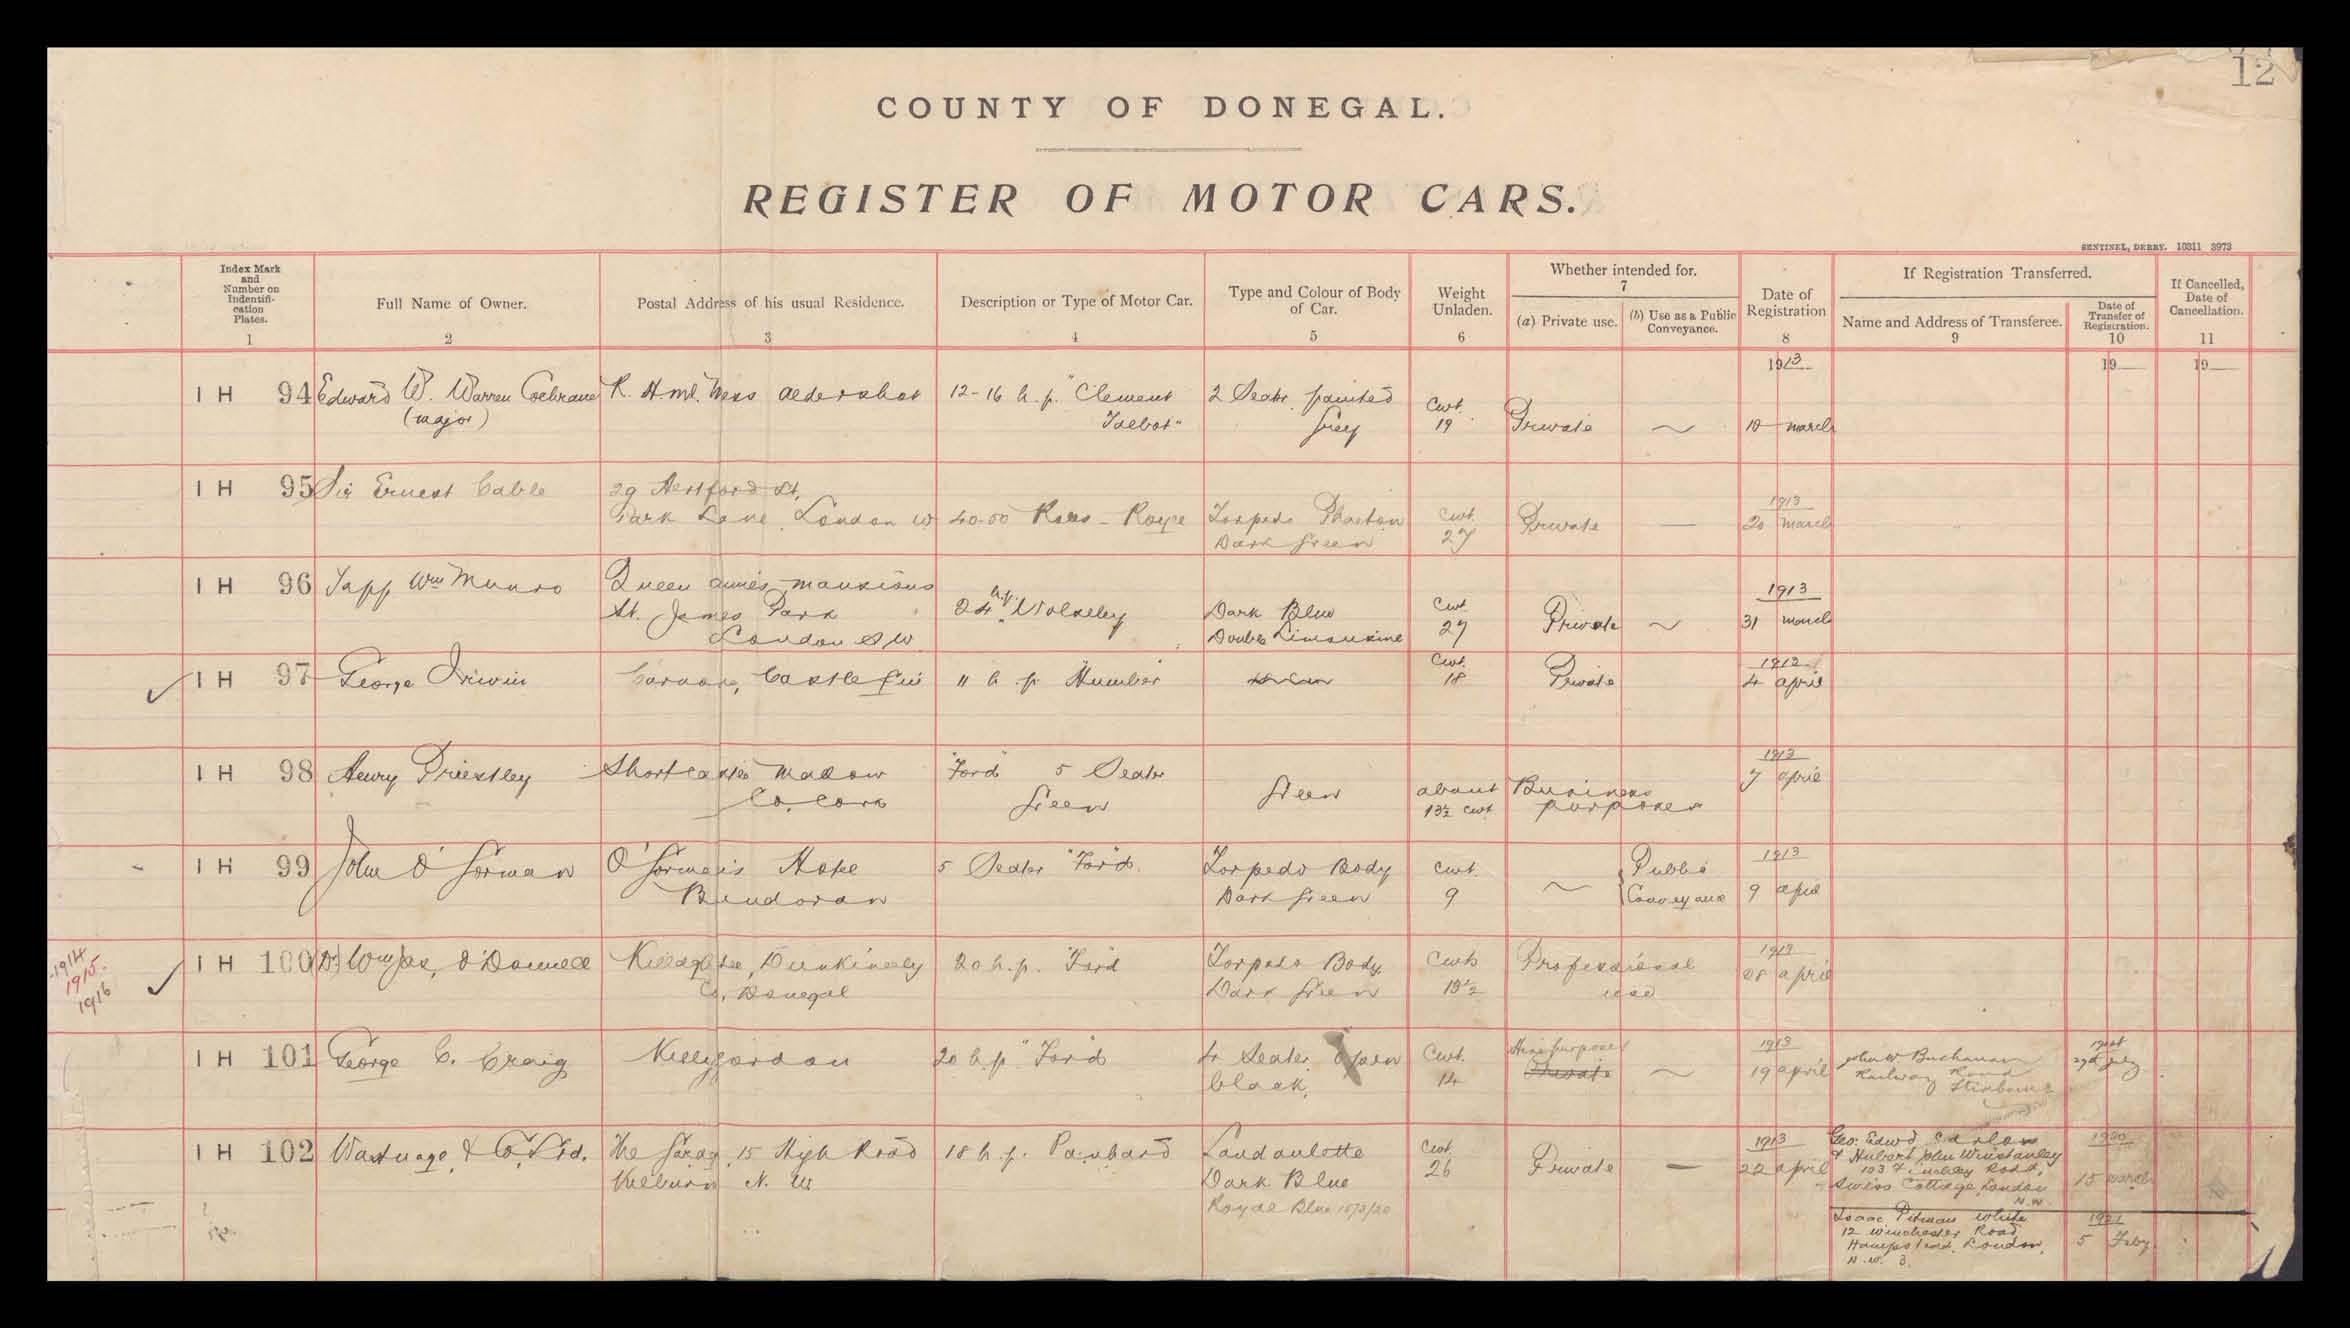 12
COUNTY OF DONEGAL.
REGISTER OF MOTOR CARS.
SENTINEL, DERRY. 10311 3973
Index Mark and Number on Indentifi- cation Plates.
Full Name of Owner.
Postal Address of his usual Residence.
Description or Type of Motor Car.
Type and Colour of Body of Car.
Weight Unladen.
Whether intended for.
7
(a) Private use.
(b) Use as a Public Conveyance.
Date of Registration
If Registration Transferred.
Name and Address of Transferee.
Date of Transfer of Registration.
If Cancelled, Date of Cancellation.
1 2 3 4 5 6 8 9 10 11
1913 19 19
IH 94 Edward W. Warren Cochrane R. H. Mess Aldershot 12-16 h.p. "Clement 2 Seater painted Cwt.
(Major) Talbot" Grey 19 Private 10 March
IH 95 Sir Ernest Cable 29 Hertford St, 1913
Park Lane, London W 40.50 Rolls-Royce Torpedo Phaeton Cwt. 27 Private — 20 March
Dark Green
IH 96 Tapp Wm Munro Queen Anne's Mansions 1913
St. James Park 24 h.p. Wolseley Dark Blue Cwt. 27 Private 31 March
London SW. Double Limousine
IH 97 George Irwin Castlefin 11 h.p. Humber Cwt. 18 Private 4 April
IH 98 Henry Priestley Shortcastle Mallow "Ford" 5 Seater 1913
Co. Cork Green Green about 13½ cwt Business purposes 7 April
IH 99 John O'Gorman O'Gorman's Hotel 5 Seater "Ford" Torpedo Body Cwt. Public 1913
Bundoran Dark Green 9 Conveyance 9 April
1914
1915
1916
IH 100 Dr. Wm Jas. O'Donnell Dunkineely 20 h.p. "Ford" Torpedo Body Cwts Professional 1913
Co. Donegal Dark Green 13½ use 28 April
IH 101 George C. Craig Killygordon 20 h.p. "Ford" 4 Seater Open Cwt. Hire purposes 1913 John W Buchanan
black, 14 Private 19 April Railway Road
Strabane 29th July
IH 102 & Co. Ltd. The Garage, 15 High Road 18 h.p. Panhard Landaulette Cwt. 1913 Geo. Edwd 1920
Kilburn N.W. Dark Blue 26 Private — 22 April & Hubert John Winstanley
Royal Blue 15/3/20 103 Finchley Road,
Swiss Cottage, London 15 March
N.W.
Isaac Pitman White 1921
12 Winchester Road 5 Feby
Hampstead, London,
N.W. 3.